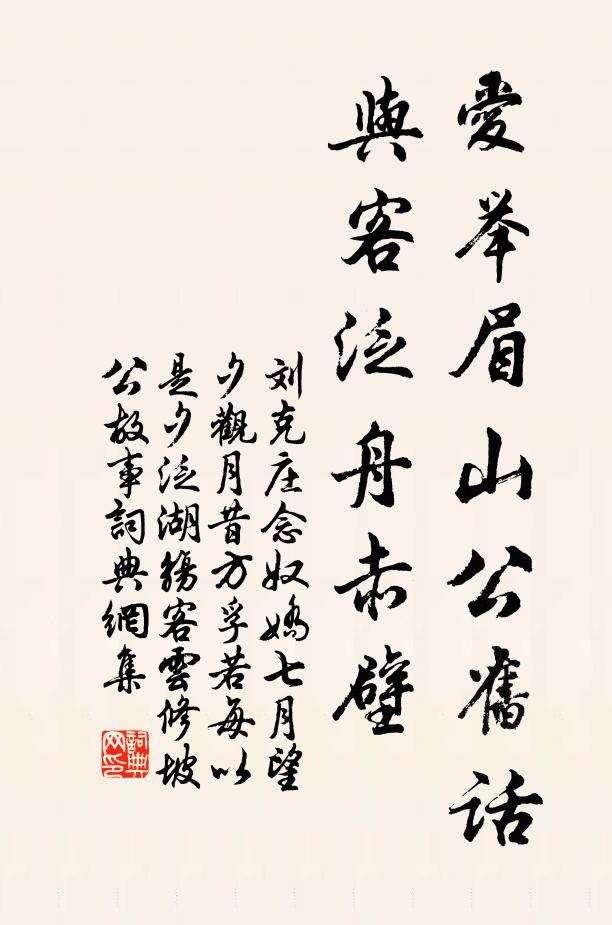 愛举眉山公舊话
與客泛舟赤壁
刘克庄念奴嬌七月望
夕觀月昔方孚若每以
是夕泛湖觴客雲修坡
公故事詞典網集
詞典网印